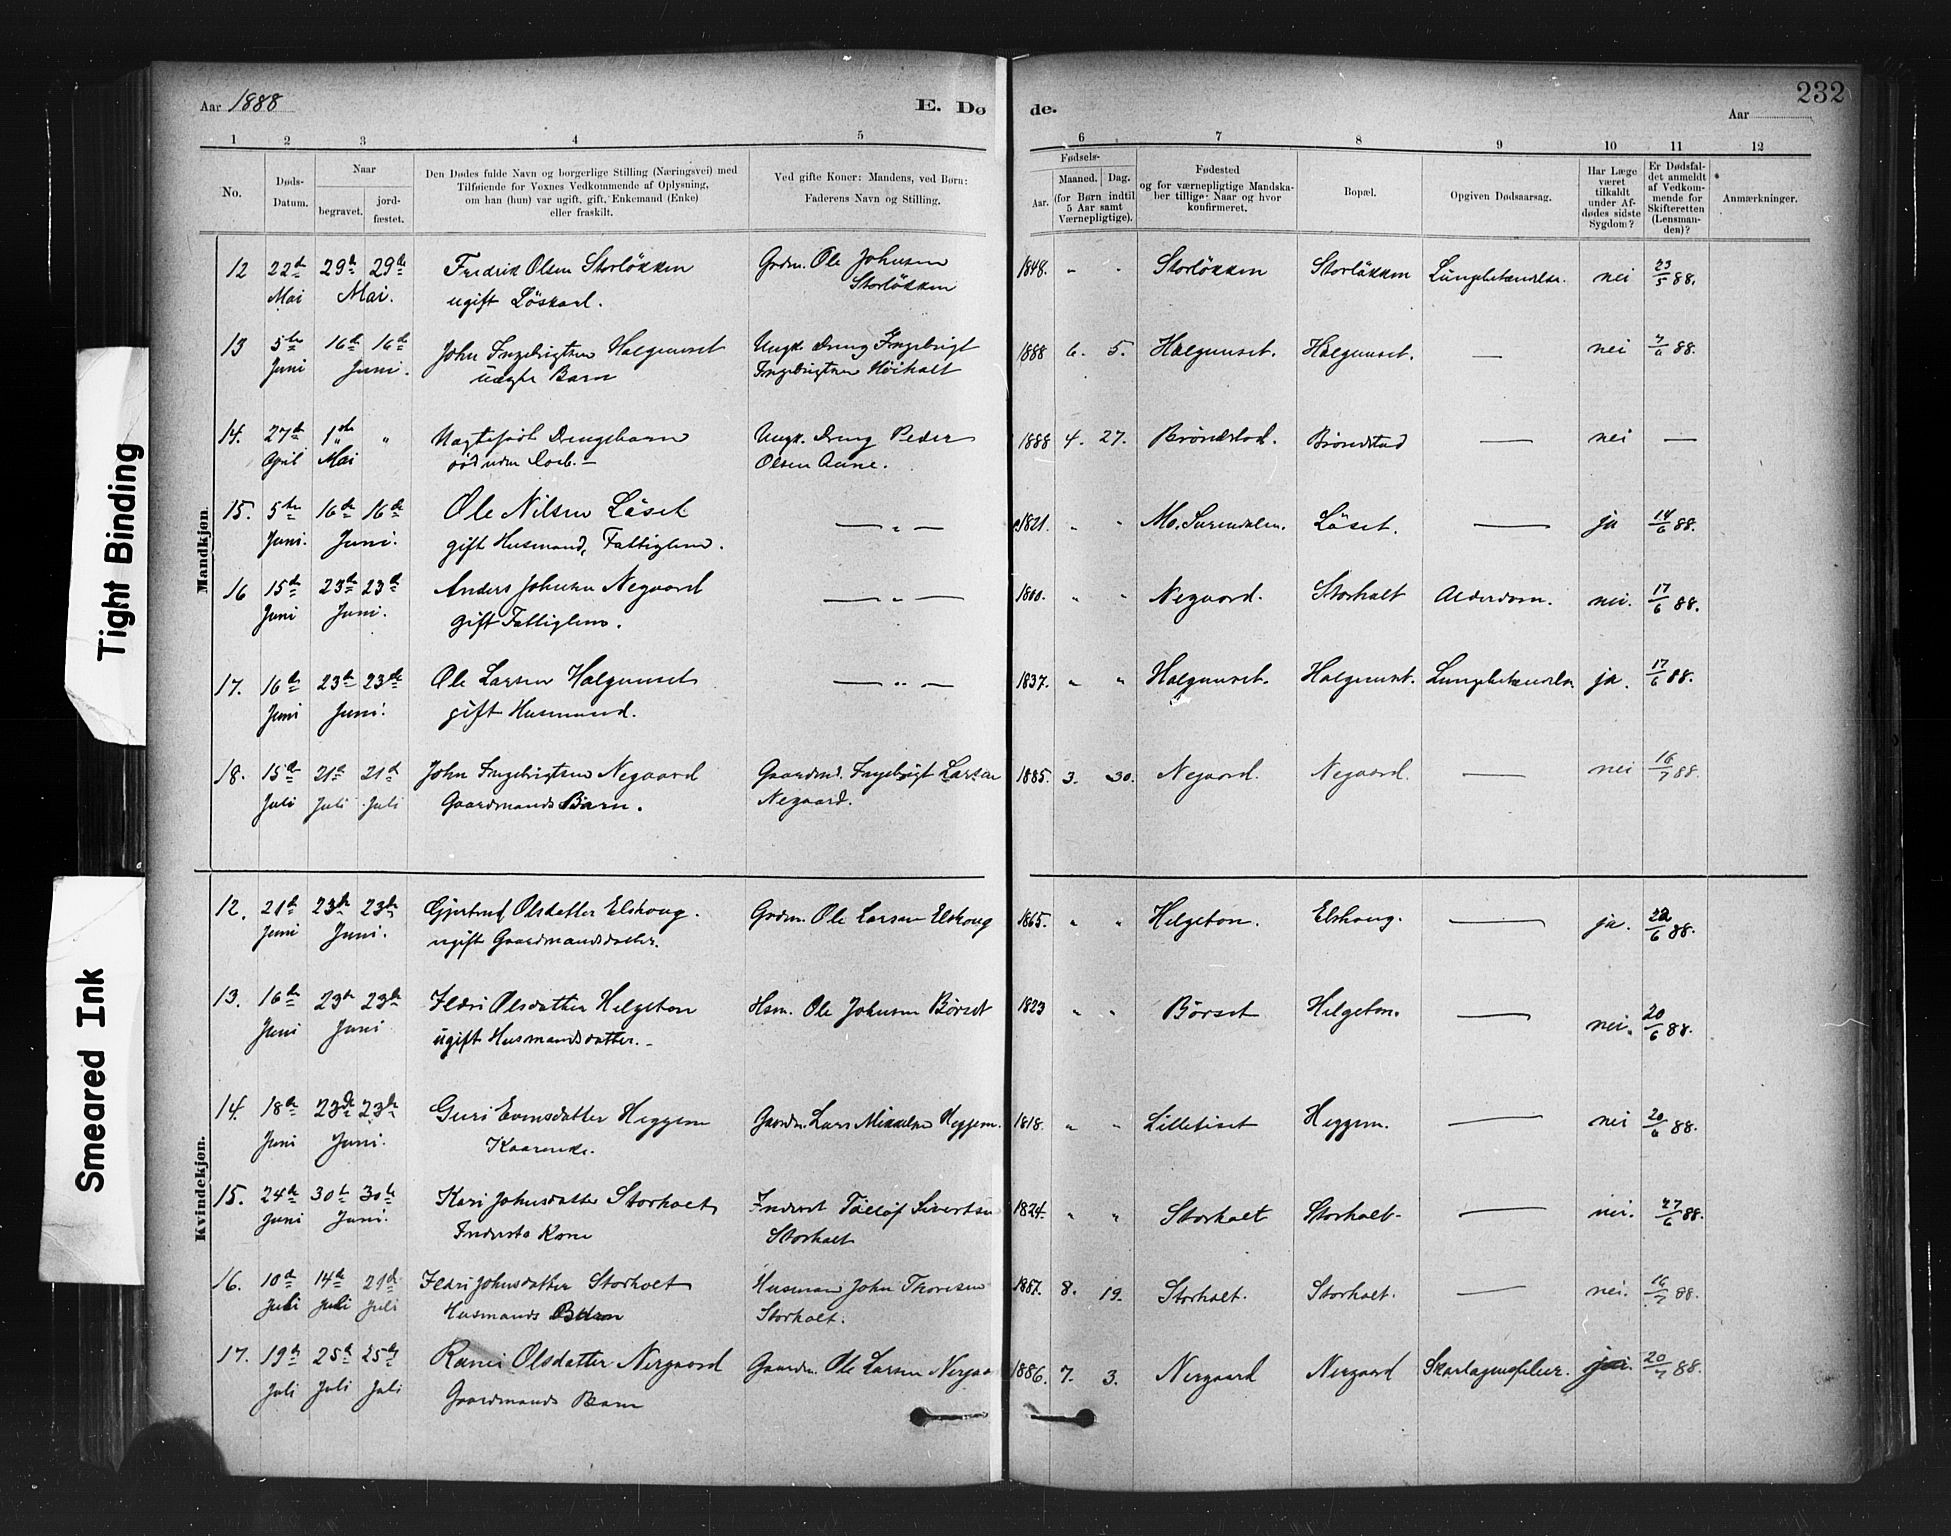 Aar 1888
E. Dø
de.
Aar
232
1 2 3 4 5 6 7 8 9 10 11 12
No.
Døds-Datum.
Naar
begravet.
jord-fæstet.
Den Dødes fulde Navn og borgerlige Stilling (Næringsvei) med
Tilføiende for Voxnes Vedkommende af Oplysning,
om han (hun) var ugift, gift, Enkemand (Enke)
eller fraskilt.
Ved gifte Koner: Mandens, ved Børn:
Faderens Navn og Stilling.
Fødsels-
Aar.
Maaned. Dag.
(for Børn indtil
5 Aar samt
Værnepligtige).
Fødested
og for værnepligtige Mandska-
ber tillige: Naar og hvor
konfirmeret.
Bopæl.
Opgiven Dødsaarsag.
Har Læge
været
tilkaldt
under Af-
dødes sidste
Sygdom?
Er Dødsfal-
det anmeldt
af Vedkom-
mende for
Skifteretten
(Lensman-
den)?
Anmærkninger.
Mandkjøn.
12 22de 29de 29de Fredrik Olsen Storløkken Grdm. Ole Johnsen 1848. " " Storløkken Storløkken Lungebetændelse. nei 23/5 88.
Mai Mai. ugift Løskarl. Storløkken
13 5te 16de 16de John Ingebrigtsen Halgunset Ungk. Dreng Ingebrigt 1888 6. 5. Halgunset. Halgunset. — nei 7/6 88.
Juni Juni. uægte Barn Ingebrigtsen Høiholt
14. 27de 1ste " Uægtefødt Drengebarn Ungk. Dreng Peder 1888 4. 27. Brøndstad. Brøndstad — nei —
April Mai død uden Daab. — Olsen Aune.
15. 5te 16de 16de Ole Nilsen Løset — " — 1821. " " Mo. Surendalen. Løset. — ja 14/6 88.
Juni. Juni. gift Husmand, Fattiglem.
16 15de 23de 23de Anders Johnsen Negaard — " — 1800. " " Negaard. Storholt Alderdom. nei. 17/6 88.
Juni Juni. gift Fattiglem.
17. 16de 23de 23de Ole Larsen Halgunset — " — 1837. " " Halgunset. Halgunset. Lungebetændelse ja. 17/6 88.
Juni Juni. gift Husmand.
18. 15de 21de 21de John Ingebrigtsen Negaard Gaardmd. Ingebrigt Larsen 1885. 3. 30. Negaard. Negaard. — nei 16/7 88.
Juli Juli Juli Gaardmands Barn. Negaard.
Kvindekjøn.
12. 21de 23de 23de Gjertrud Olsdatter Elshoug. Grdm. Ole Larsen Elshoug 1865. " " Helgeton. Elshoug. — ja. 22/6 88.
Juni Juni. ugift Gaardmandsdatter.
13. 16de 23de 23de Ildri Olsdatter Helgeton Hsm. Ole Johnsen Børset 1823 " " Børset Helgeton. — nei. 20/6 88.
Juni Juni ugift Husmandsdatter. -
14. 18de 23de 23de Guri Evensdatter Heggem Gaardm. Lars Mikkelsen Heggem. 1818. " " Lilletiset Heggem. — nei 20/6 88.
Juni Juni. Kaarenke.
15. 24de 30te 30te Kari Johnsdatter Storholt Inderst Tøllef Sivertsen 1824. " " Storholt Storholt — nei. 27/6 88.
Juni Juni. Indersts Kone Storholt
16. 10de 14de 21de Ildri Johnsdatter Storholt Husman John Thoresen 1887. 8. 19. Storholt. Storholt. — nei. 16/7 88.
Juli Juli Juli Husmands Barn Storholt.
17. 19de 25de 25de Olsdatter Nergaard Gaardm. Ole Larsen Nergaa 1886. 7. 3. Nergaard Nergaard Skarlagensfeber. 20/7 88.
Juli Juli Juli Gaardmands Barn
Tight Binding
Smeared Ink